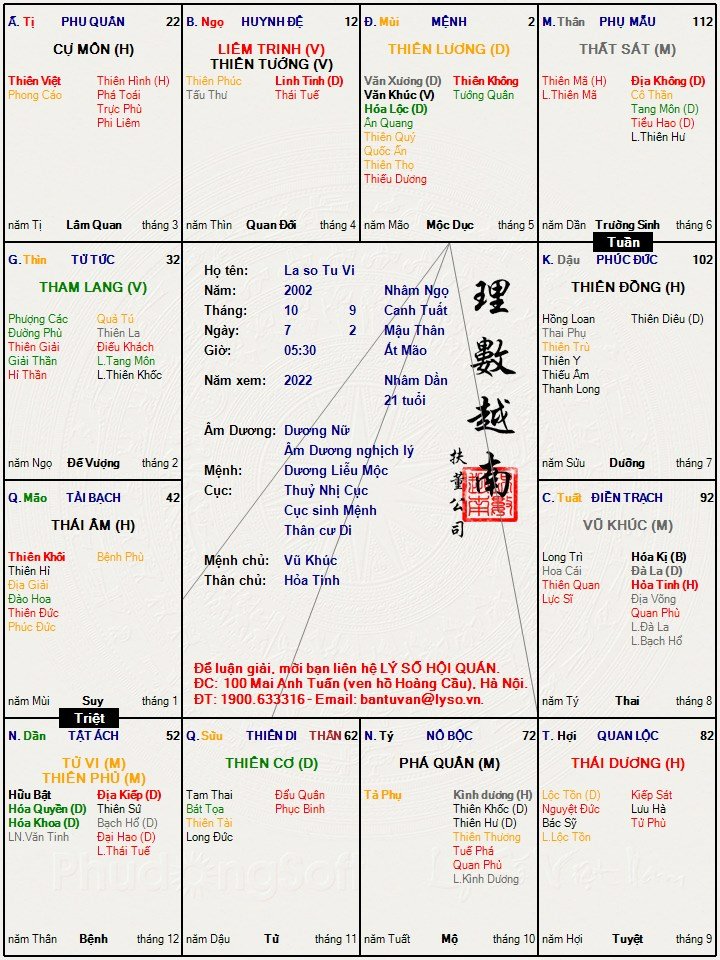 Ấ. Tị PHU QUÂN 22
CỰ MÔN (H)
Thiên Việt Thiên Hình (H)
Phong Cáo Phá Toái
Trực Phù
Phi Liêm
năm Tị Lâm Quan tháng 3
B. Ngọ HUYNH ĐỆ 12
LIÊM TRINH (V)
THIÊN TƯỚNG (V)
Thiên Phúc Linh Tinh (D)
Tấu Thư Thái Tuế
năm Thìn Quan Đới tháng 4
Đ. Mùi MỆNH 2
THIÊN LƯƠNG (D)
Văn Xương (D) Thiên Không
Văn Khúc (V) Tướng Quân
Hóa Lộc (D)
Ân Quang
Thiên Quý
Quốc Ấn
Thiên Thọ
Thiếu Dương
năm Mão Mộc Dục tháng 5
M. Thân PHỤ MẪU 112
THẤT SÁT (M)
Thiên Mã (H) Địa Không (D)
L.Thiên Mã Cô Thần
Tang Môn (D)
Tiểu Hao (D)
L.Thiên Hư
năm Dần Trường Sinh tháng 6
Tuần
G. Thìn TỬ TỨC 32
THAM LANG (V)
Phượng Các Quả Tú
Đường Phù Thiên La
Thiên Giải Điếu Khách
Giải Thần L.Tang Môn
Hỉ Thần L.Thiên Khốc
năm Ngọ Đế Vượng tháng 2
Họ tên: La so Tu Vi
Năm: 2002 Nhâm Ngọ
Tháng: 10 9 Canh Tuất
Ngày: 7 2 Mậu Thân
Giờ: 05:30 Ất Mão
Năm xem: 2022 Nhâm Dần
21 tuổi
Âm Dương: Dương Nữ
Âm Dương nghịch lý
Mệnh: Dương Liễu Mộc
Cục: Thuỷ Nhị Cục
Cục sinh Mệnh
Thân cư Di
Mệnh chủ: Vũ Khúc
Thân chủ: Hỏa Tinh
理數越南
扶董公司
Để luận giải, mời bạn liên hệ LÝ SỐ HỘI QUÁN.
ĐC: 100 Mai Anh Tuấn (ven hồ Hoàng Cầu), Hà Nội.
ĐT: 1900.633316 - Email: bantuvan@lyso.vn.
K. Dậu PHÚC ĐỨC 102
THIÊN ĐỒNG (H)
Hồng Loan Thiên Diêu (D)
Thai Phụ
Thiên Trù
Thiên Y
Thiếu Âm
Thanh Long
năm Sửu Dưỡng tháng 7
Q. Mão TÀI BẠCH 42
THÁI ÂM (H)
Thiên Khôi Bệnh Phù
Thiên Hỉ
Địa Giải
Đào Hoa
Thiên Đức
Phúc Đức
năm Mùi Suy tháng 1
C. Tuất ĐIỀN TRẠCH 92
VŨ KHÚC (M)
Long Trì Hóa Kị (B)
Hoa Cái Đà La (D)
Thiên Quan Hỏa Tinh (H)
Lực Sĩ Địa Võng
Quan Phù
L.Đà La
L.Bạch Hổ
năm Tý Thai tháng 8
Triệt
N. Dần TẬT ÁCH 52
TỬ VI (M)
THIÊN PHỦ (M)
Hữu Bật Địa Kiếp (D)
Hóa Quyền (D) Thiên Sứ
Hóa Khoa (D) Bạch Hổ (D)
LN.Văn Tinh Đại Hao (D)
L.Thái Tuế
năm Thân Bệnh tháng 12
Q. Sửu THIÊN DI THÂN 62
THIÊN CƠ (D)
Tam Thai Đẩu Quân
Bát Tọa Phục Binh
Thiên Tài
Long Đức
năm Dậu Tử tháng 11
N. Tý NÔ BỘC 72
PHÁ QUÂN (M)
Tả Phụ Kình dương (H)
Thiên Khốc (D)
Thiên Hư (D)
Thiên Thương
Tuế Phá
Quan Phủ
L.Kình Dương
năm Tuất Mộ tháng 10
T. Hợi QUAN LỘC 82
THÁI DƯƠNG (H)
Lộc Tồn (D) Kiếp Sát
Nguyệt Đức Lưu Hà
Bác Sỹ Tử Phù
L.Lộc Tồn
năm Hợi Tuyệt tháng 9